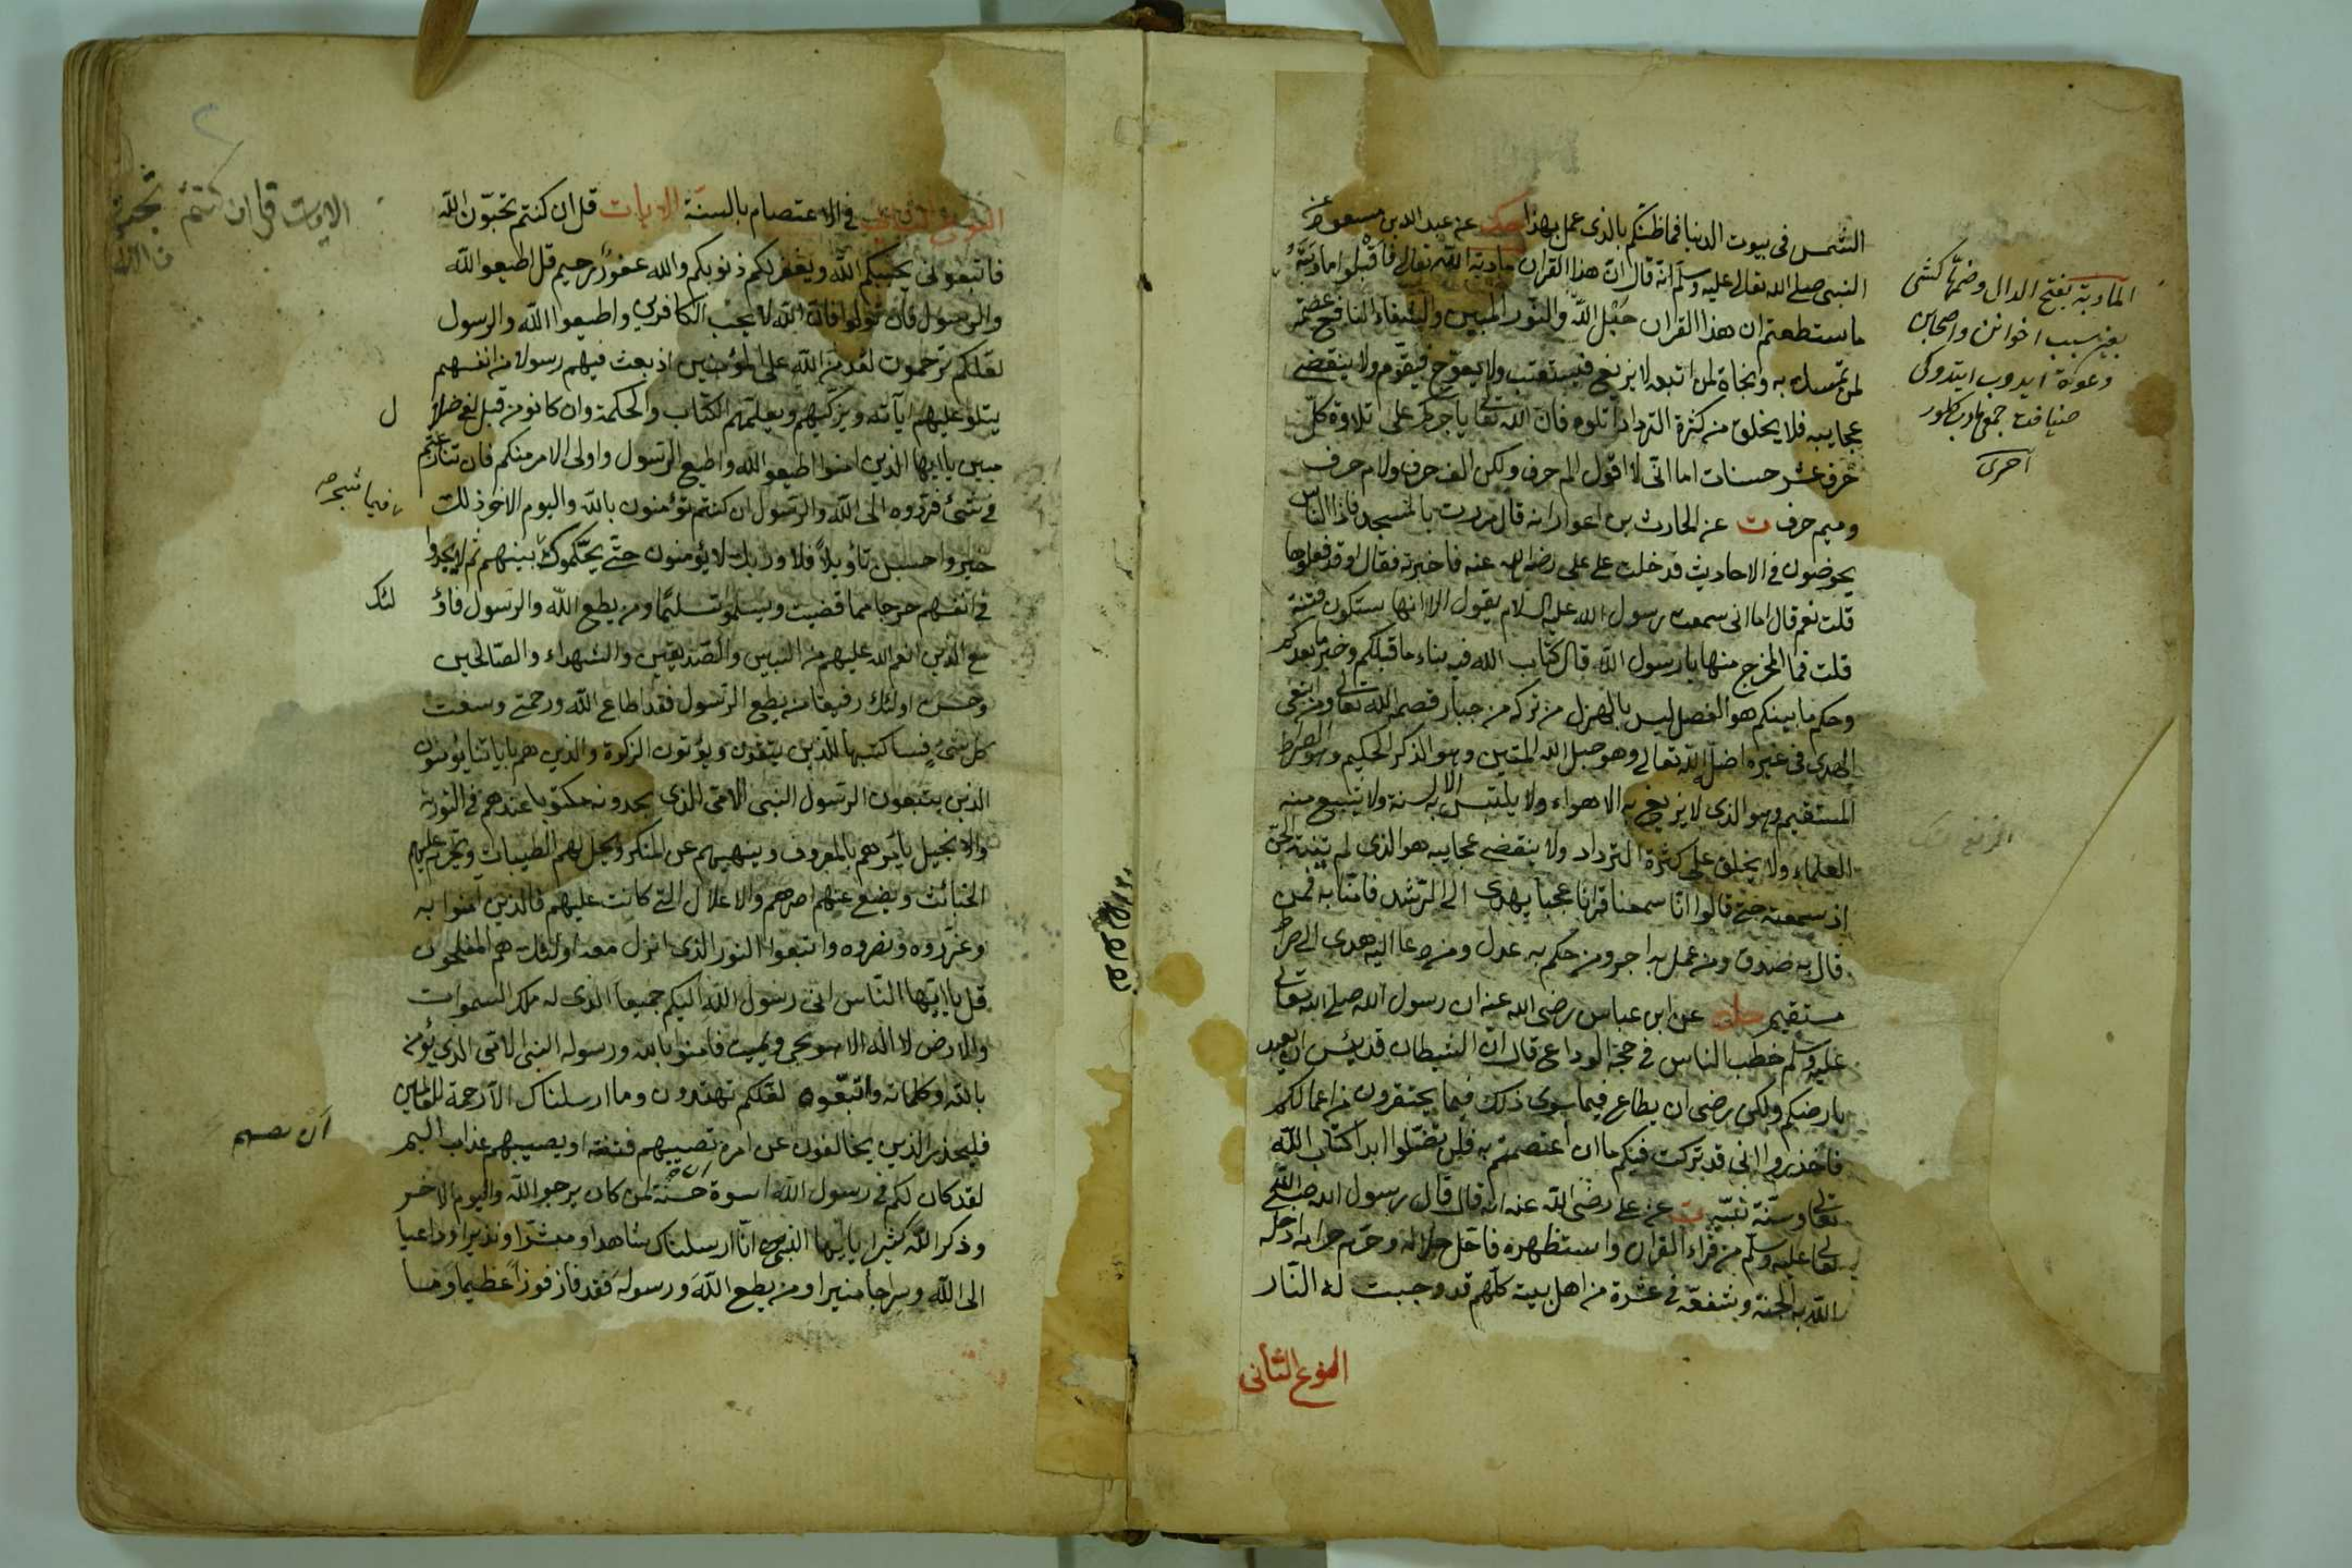 الشمس فى بيوت الدنيا فما ظنكم بالذى عمل بهذا حك عن عبد الله بن مسعود عن
النبى صلى الله تعالى عليه وسلم انه قال ان هذا القران مادبة الله تعالى فاقبلوا مادبته
ما استطعتم ان هذا القران حبل الله والنور المبين والشفاء النافع عصمة
لمن تمسك به ونجاة لمن اتبعه لا يزيغ فيستعتب ولا يعوج فيقوم ولا ينقضى
عجايبه فلا يخلق من كثرة الترداد اتلوه فان الله تعالى يأجركم على تلاوة كل
حرف عشر حسنات اما انى لا اقول الم حرف ولكن الف حرف ولام حرف
وميم حرف ت عن الحارث بن اعوار انه قال مررت بالمسجد فاذا الناس
يخوضون فى الاحاديث فدخلت على على رضى الله عنه فاخبرته فقال اوقد فعلوها
قلت نعم قال اما انى سمعت رسول الله عليه السلام يقول الا انها ستكون فتنة
قلت فما المخرج منها يا رسول الله قال كتاب الله فيه بناء ما قبلكم وخبر ما بعدكم
وحكم ما بينكم هو الفصل ليس بالهزل من تركه من جبار قصمه الله تعالى ومن ابتغى
الهدى فى غيره اضل الله تعالى وهو حبل الله المتين وهو الذكر الحكيم وهو الصراط
المستقيم وهو الذى لا يزيغ به الاهواء ولا يلتبس به الالسنة ولا يشبع منه
العلماء ولا يخلق على كثرة الترداد ولا ينقضى عجايبه هو الذى لم تنته الجن
اذ سمعته حتى قالوا انا سمعنا قرانا عجبا يهدى الى الرشد فامنا به فمن
قال به صدق ومن عمل به اجر ومن حكم به عدل ومن دعا اليه هدى الى صراط
مستقيم عن ابن عباس رضى الله عنه ان رسول الله صلى الله تعالى
عليه وسلم خطب الناس فى حجة الوداع قال ان الشيطان قد يئس ان يعبد
بارضكم ولكن رضى ان يطاع فيما سوى ذلك فيما يحتقرون من اعمالكم
فاحذروا انى قد تركت فيكم ما ان اعتصمتم به فلن تضلوا ابدا كتاب الله
تعالى وسنة نبيه ت عن على رضى الله عنه انه قال قال رسول الله صلى الله
تعالى عليه وسلم من قراء القران واستظهره فاحل حلاله وحرم حرامه ادخله
الله به الجنة وشفعه فى عشرة من اهل بيته كلهم قد وجبت له النار
النوع الثانى
المادبة بفتح الدال وضمها كشى
بغير سبب اخوانن واصحابن
دعوة ايدوب ايتدوكى
ضيافت جمع مادب كلور
آخرى
النوع الثانى فى الاعتصام بالسنة الايات قل ان كنتم تحبون الله
فاتبعونى يحببكم الله ويغفر لكم ذنوبكم والله غفور رحيم قل اطيعوا الله
والرسول فان تولوا فان الله لا يحب الكافرين واطيعوا الله والرسول
لعلكم ترحمون لقد من الله على المؤمنين اذ بعث فيهم رسولا من انفسهم
يتلو عليهم آياته ويزكيهم ويعلمهم الكتاب والحكمة وان كانو من قبل لفى ضلا
مبين يا ايها الذين امنوا اطيعو الله واطيع الرسول واولى الامر منكم فان تنازعتم
فى شئ فردوه الى الله والرسول ان كنتم تؤمنون بالله واليوم الاخر ذلك
خير واحسن تأويلا فلا وربك لا يؤمنون حتى يحكموك بينهم ثم لا يجدوا
فى انفسهم حرجا مما قضيت ويسلمو تسليما ومن يطع الله والرسول فاؤ
مع الذين انعم الله عليهم من النبيين والصديقين والشهداء والصالحين
وحسن اولئك رفيقا من يطع الرسول فقد اطاع الله ورحمتى وسعت
كل شئ فساكتبها للذين يتقون ويؤتون الزكوة والذين هم باياتنا يؤمنون
الذين يتبعون الرسول النبى الامى الذى يجدونه مكتوبا عندهم فى التورية
والانجيل يأمرهم بالمعروف وينهيهم عن المنكر ويحل لهم الطيبات ويحرم عليهم
الخبائث ويضع عنهم اصرهم والاغلال التى كانت عليهم فالذين امنوا به
وعزروه ونصروه واتبعوا النور الذى انزل معه اولئك هم المفلحون
قل يا ايها الناس انى رسول الله اليكم جميعا الذى له ملك السموات
والارض لا اله الا هو يحيى ويميت فامنوا بالله ورسوله النبى الامى الذى يؤمن
بالله وكلماته واتبعوه لعلكم تهتدون وما ارسلناك الا رحمة للعالمين
فليحذر الذين يخالفون عن امره تصيبهم فتنة او يصيبهم عذاب اليم
لقد كان لكم فى رسول الله اسوة حسنة لمن كان يرجو الله واليوم الاخر
وذكر الله كثيرا يا ايها النبى انا ارسلناك شاهدا ومبشرا ونذيرا وداعيا
الى الله وسراجا منيرا ومن يطع الله ورسوله فقد فاز فوزا عظيما وما
الايات قل ان كنتم تحبو
ن الله
ل
فيما شجر
لئك
ان تصيبهم